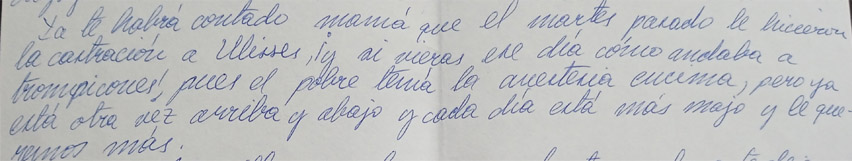 Ya te habrá contado mamá que el martes pasado le hicieron
la castración a Ulisses, ¡y si vieras ese día cómo andaba a
trompicones!, pues el pobre tenía la anestesia encima, pero ya
está otra vez arriba y abajo y cada día está más majo y le que-
remos más.